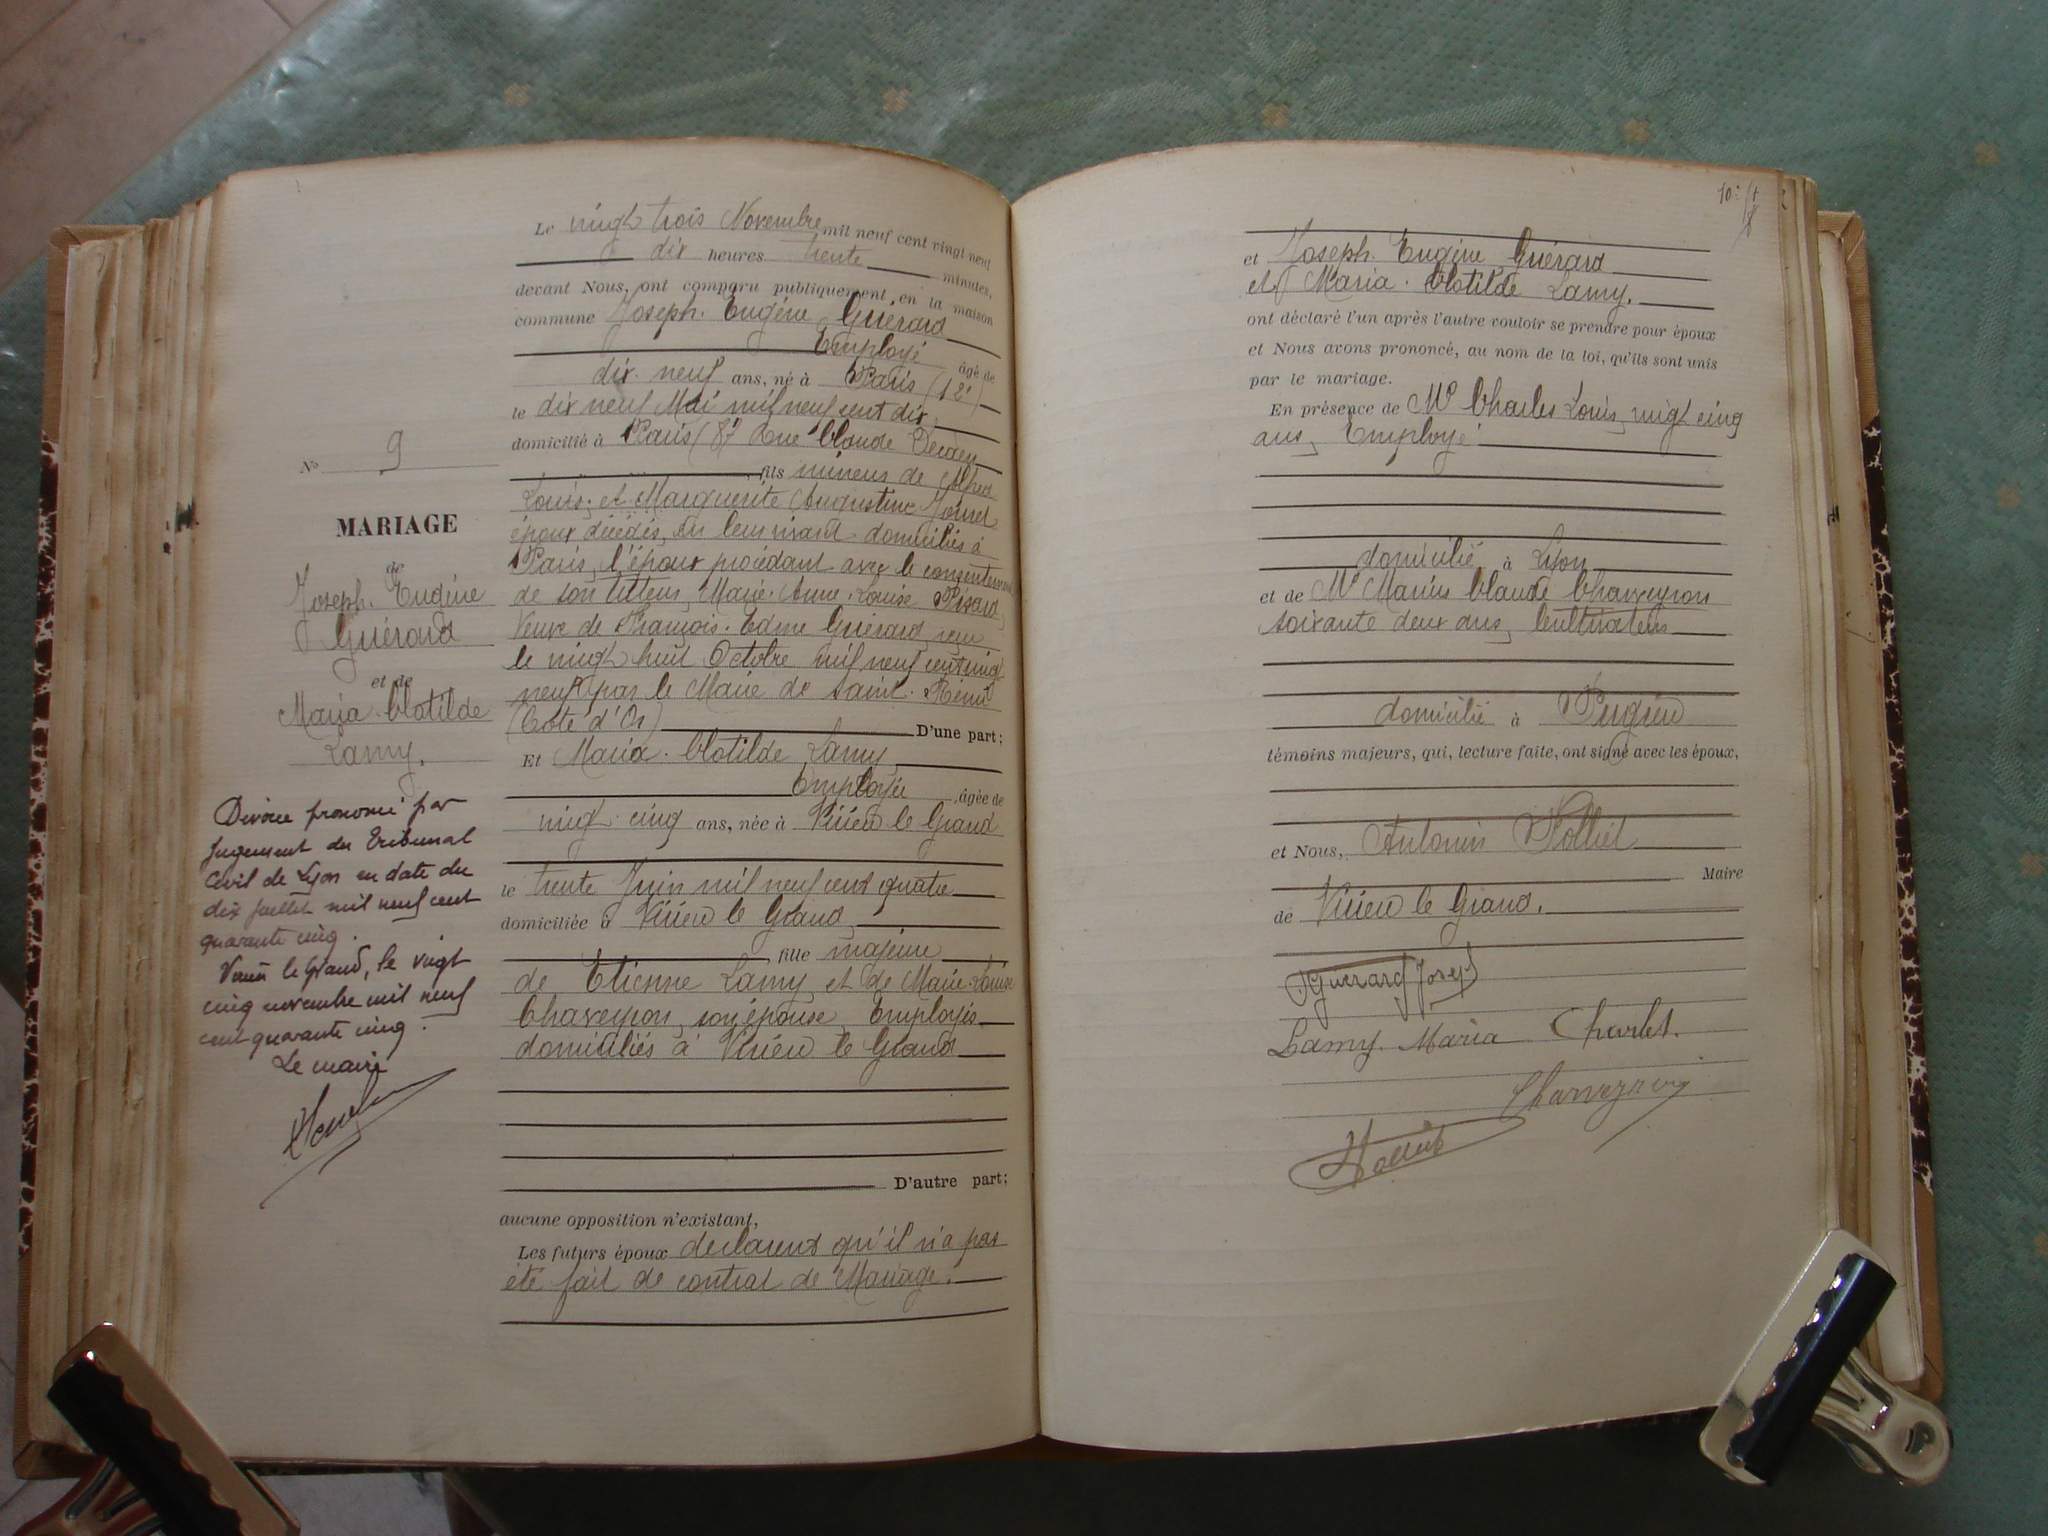 N° 9
MARIAGE
de
Joseph. Eugène
Guérard
et de
Maria. Clotilde
Lamy.
Divorce prononcé par
jugement du Tribunal
civil de Lyon en date du
dix juillet mil neuf cent
quarante cinq.
Virieu le Grand, le vingt
cinq novembre mil neuf
cent quarante cinq.
Le maire
Le vingt trois Novembre mil neuf cent vingt neuf
dix heures trente minutes,
devant Nous, ont comparu publiquement, en la maison
commune Joseph. Eugène Guérard
Employé âgé de
dix. neuf ans, né à Paris (12e)
le dix neuf Mai mil neuf cent dix,
domicilié à Paris (87 Rue Claude Decaen
fils mineur de Alfred
Louis, et Marguerite Augustine
époux décédés, en leur vivant domiciliés à
Paris, l'époux procédant avec le consentement
de son tuteur, Marie. Anne. Louise Pisard,
Veuve de François. Edme Guérard, reçu
le vingt huit Octobre mil neuf cent vingt
neuf par le Maire de Saint. Rémi
(Côte d'Or) D'une part;
Et Maria. Clotilde Lamy
Employée, âgée de
vingt. cinq ans, née à Virieu le Grand
le trente Juin mil neuf cent quatre
domiciliée à Virieu le Grand,
fille majeure
de Etienne Lamy et de Marie. Louise
Charveyron, son épouse Employés
domiciliés à Virieu le Grand
D'autre part;
aucune opposition n'existant,
Les futurs époux déclarent qu'il n'a pas
été fait de contrat de Mariage.
10:
et Joseph. Eugène Guérard
et Maria. Clotilde Lamy.
ont déclaré l'un après l'autre vouloir se prendre pour époux
et Nous avons prononcé, au nom de la loi, qu'ils sont unis
par le mariage.
En présence de Mr Charles Louis, vingt cinq
ans, Employé
domicilié à Lyon
et de Mr Marius Claude Charveyron
soixante deux ans, Cultivateur
domicilié à Pugieu
témoins majeurs, qui, lecture faite, ont signé avec les époux,
et Nous, Antonin Holliet
Maire
de Virieu le Grand.
Guerard Joseph
Lamy. Maria Charlet.
Charveyron
Holliet